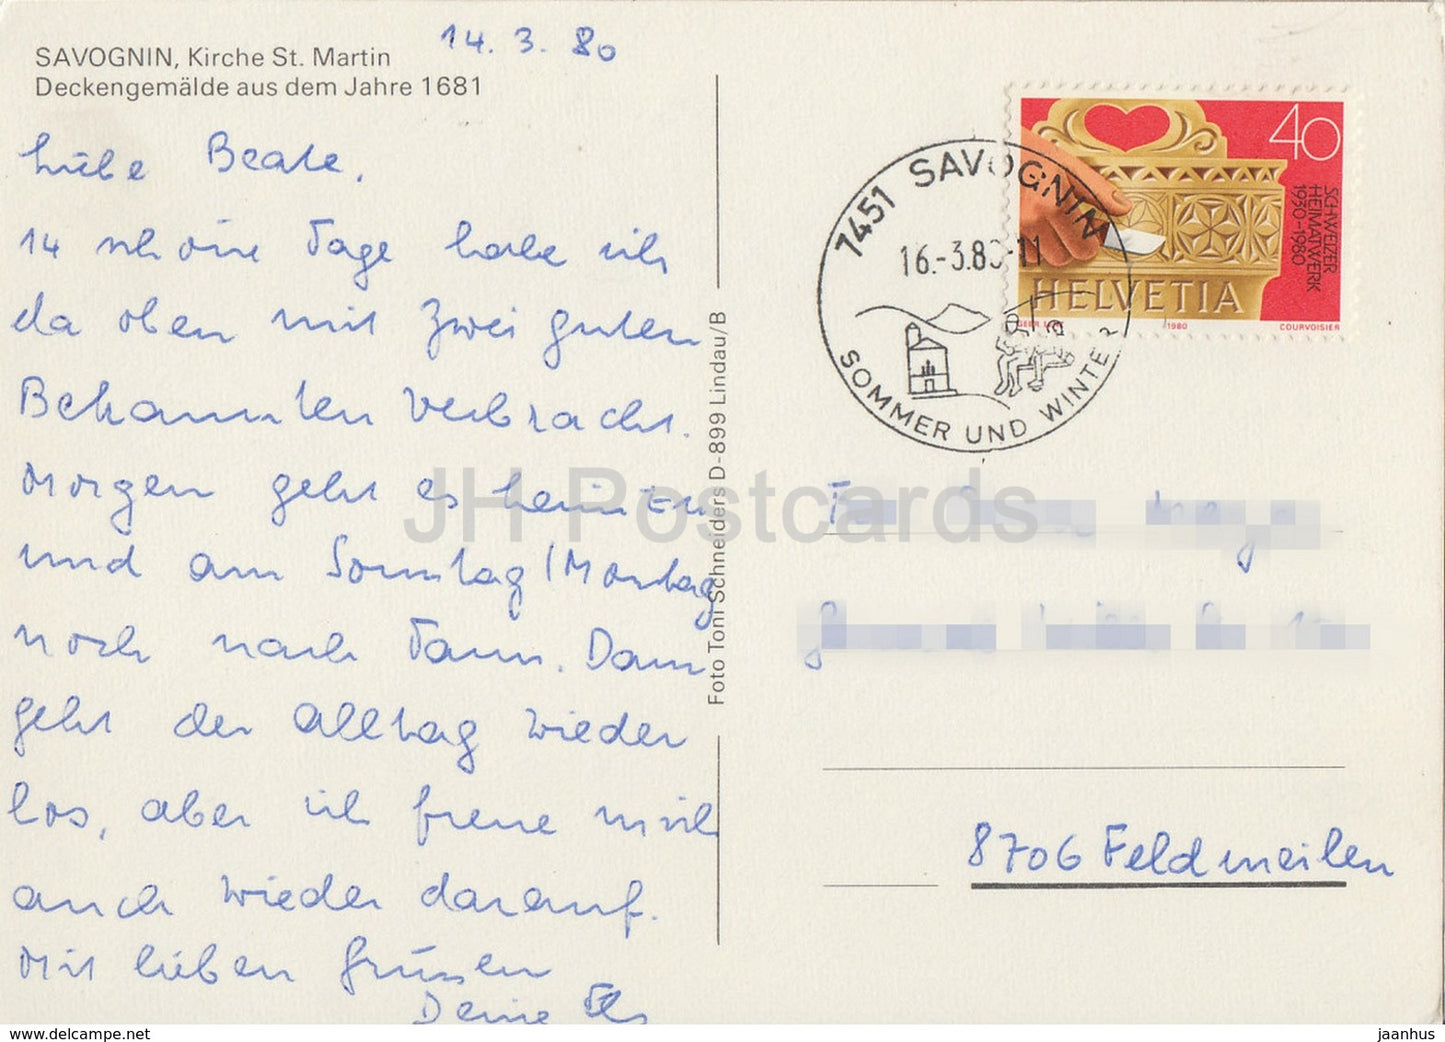 SAVOGNIN, Kirche St. Martin
Deckengemälde aus dem Jahre 1681
14. 3. 80
Liebe Beate,
14 schöne Tage habe ich
da oben mit zwei guten
Bekannten verbracht.
Morgen geht es heim zu
und am Sonntag/Montag
noch nach Tann. Dann
geht der Alltag wieder
los, aber ich freue mich
auch wieder darauf.
Mit lieben Grüssen
Deine
Foto Toni Schneiders D-899 Lindau/B
7451 SAVOGNIN
16.-3.80-11
SOMMER UND WINTER
40
SCHWEIZER
HEIMATWERK
1930-1980
HELVETIA
1980
COURVOISIER
8706 Feldmeilen
JH Postcards
https://www.delcampe.net
jaanhus